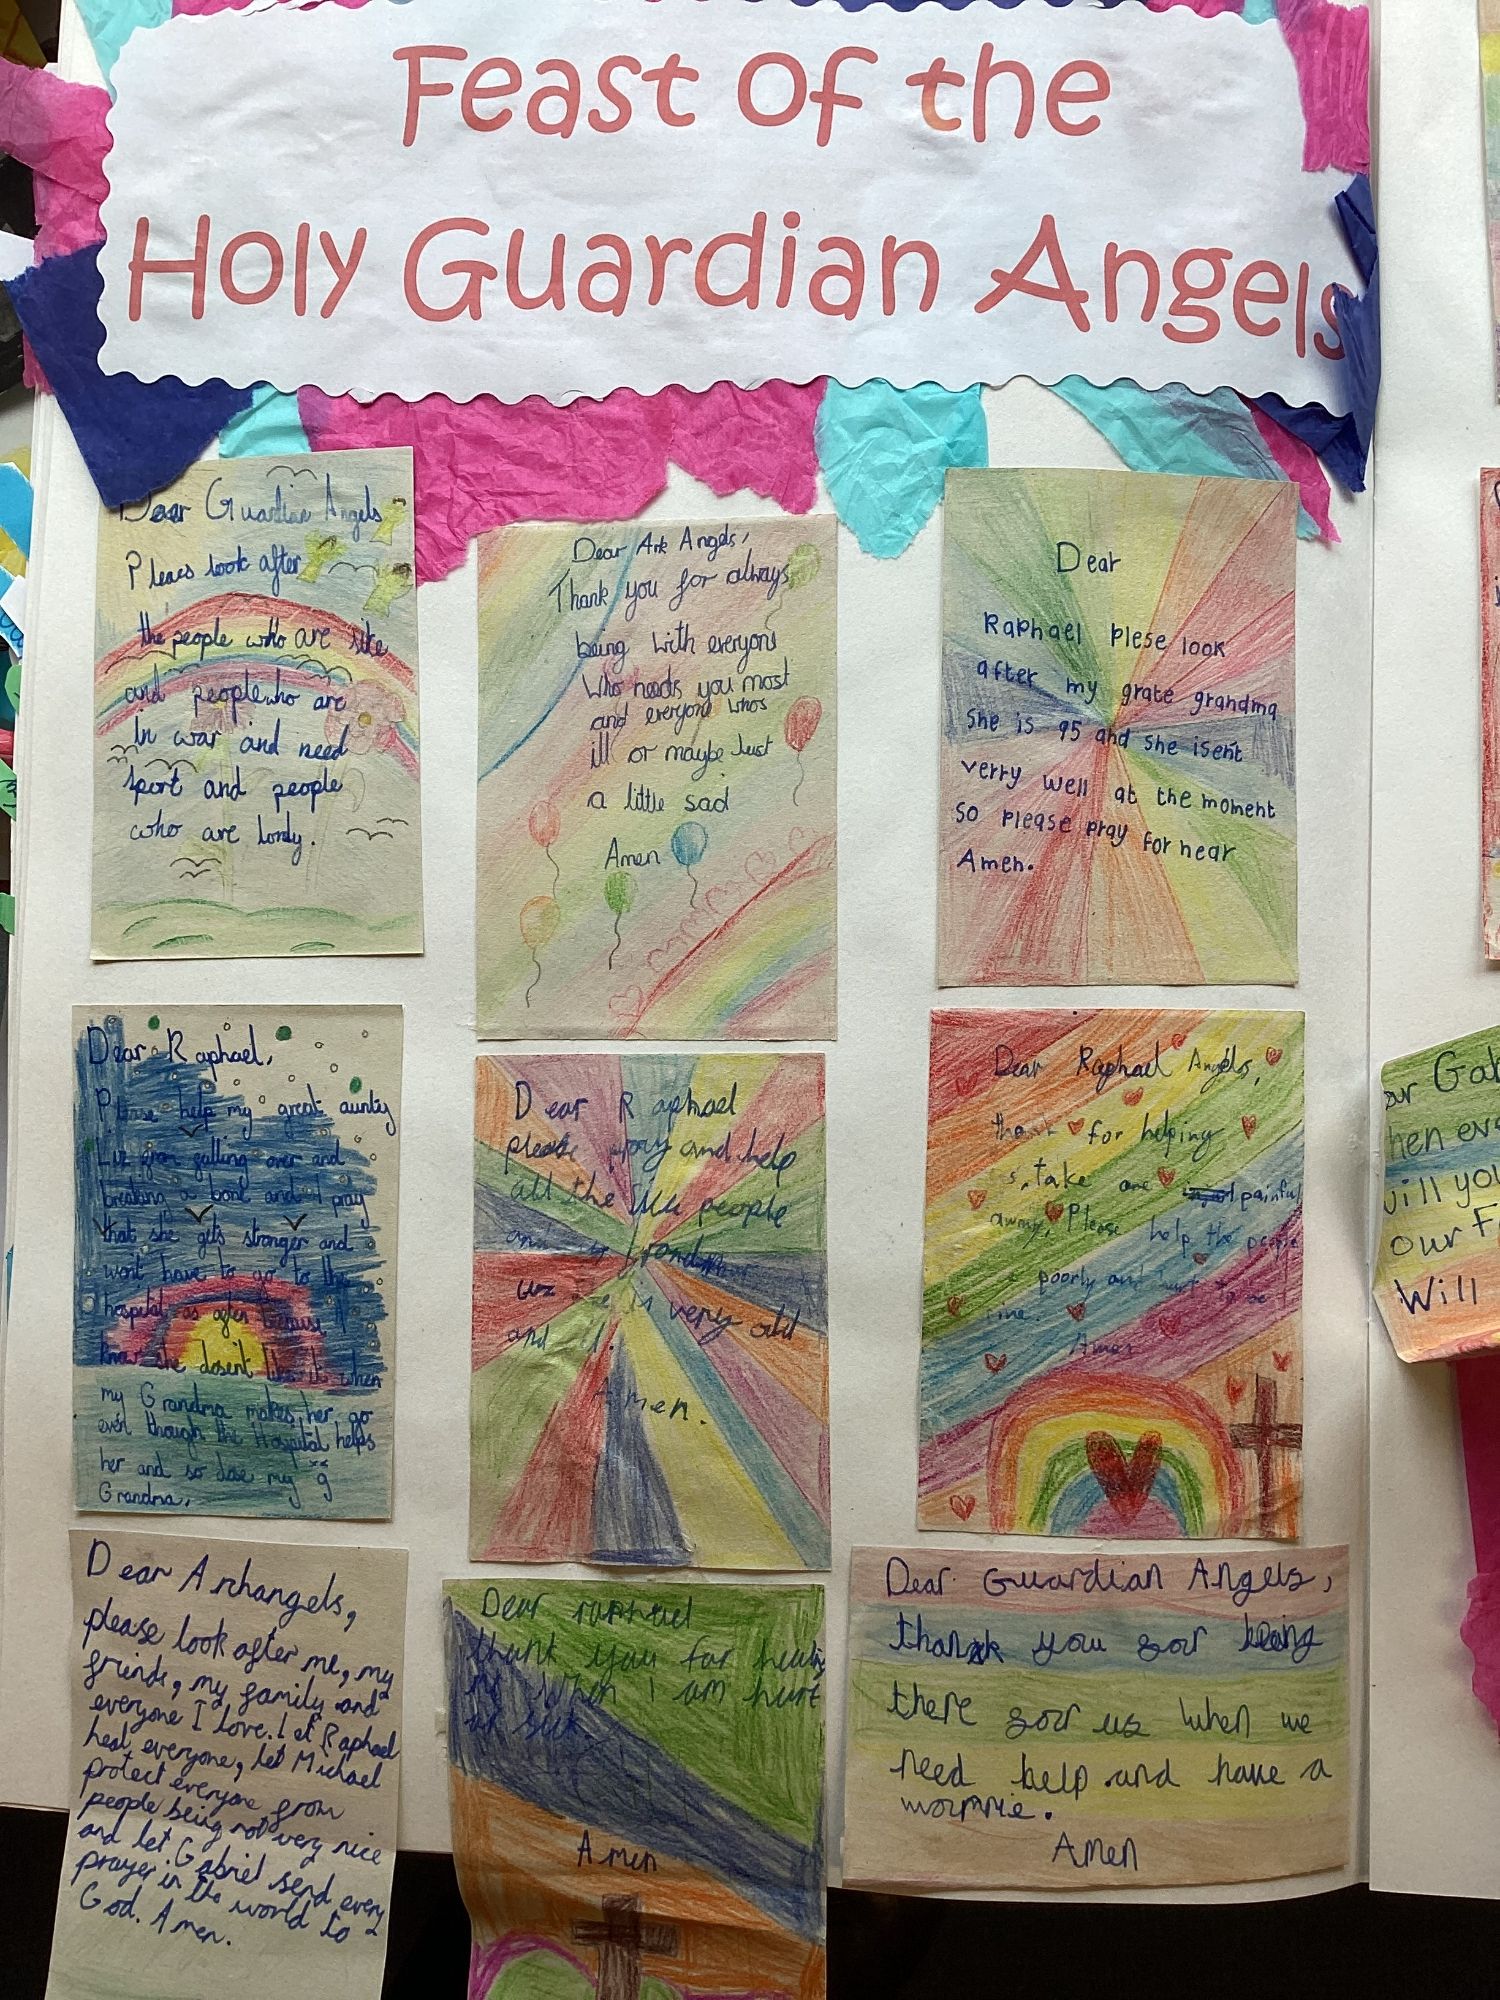 Feast of the
Holy Guardian Angels
Dear Guardian Angels
Pleacs look after
the people who are sike
and people who are
In war and need
sport and people
who are lonly.
Dear Ark Angels,
Thank you for always
being with everyone
Who needs you most
and everyone whos
ill or maybe Just
a little sad
Amen
Dear
Raphael plese look
after my grate grandma
she is 95 and she isent
verry well at the moment
so please pray for hear
Amen.
Dear Raphael,
Please help my great aunty
Liz from falling over and
breaking a bone and I pray
that she gets stronger and
wont have to go to the
hospital as often because I
know she dosent like it when
my Grandma makes her go
even though the Hospital helps
her and so dose my g
Grandma.
Dear Raphael
please pray and help
all the people
and
is very old
and ill.
Amen.
Dear Raphael Angels,
thank for helping
take are painful
away. Please help the people
poorly and hurt to be
Amen
Dear Archangels,
please look after me, my
friends, my family and
everyone I love. Let Raphael
heal everyone, let Michael
protect everyone from
people being not very nice
and let Gabriel send every
prayer in the world to
God. Amen.
Dear raphael
thank you for healing
me When I am hurt
or sick
Amen
Dear Guardian Angels,
thank you for being
there for us when we
need help and have a
worrie.
Amen
our Fa
Will